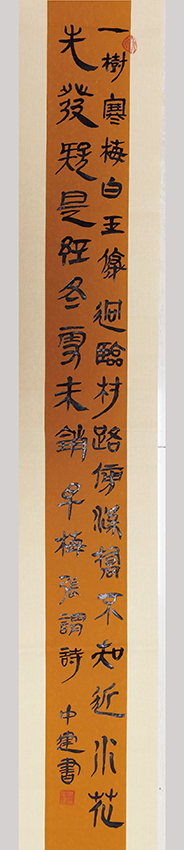 一樹寒梅白玉條迥臨村路傍溪橋不知近水花
先發疑是經冬雪未銷早梅張謂詩
中建書